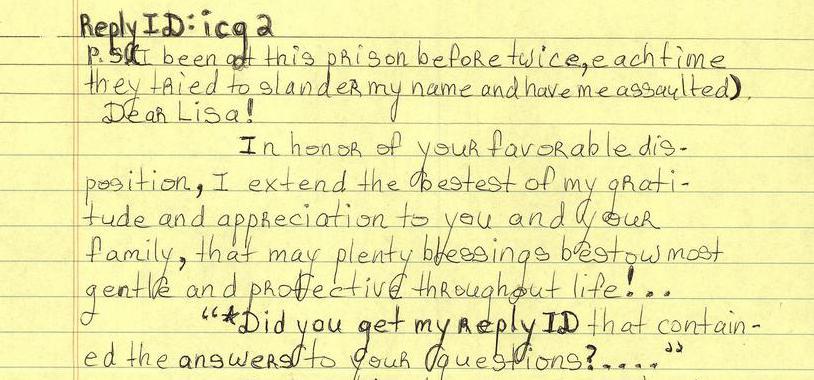 Reply ID: icg 2
P.S (I been at this prison before twice, each time
they tried to slander my name and have me assaulted).
Dear Lisa!
In honor of your favorable dis-
position, I extend the bestest of my grati-
tude and appreciation to you and your
family, that may plenty blessings bestow most
gentle and protective throughout life!...
"*Did you get my reply ID that contain-
ed the answers to your questions?...."